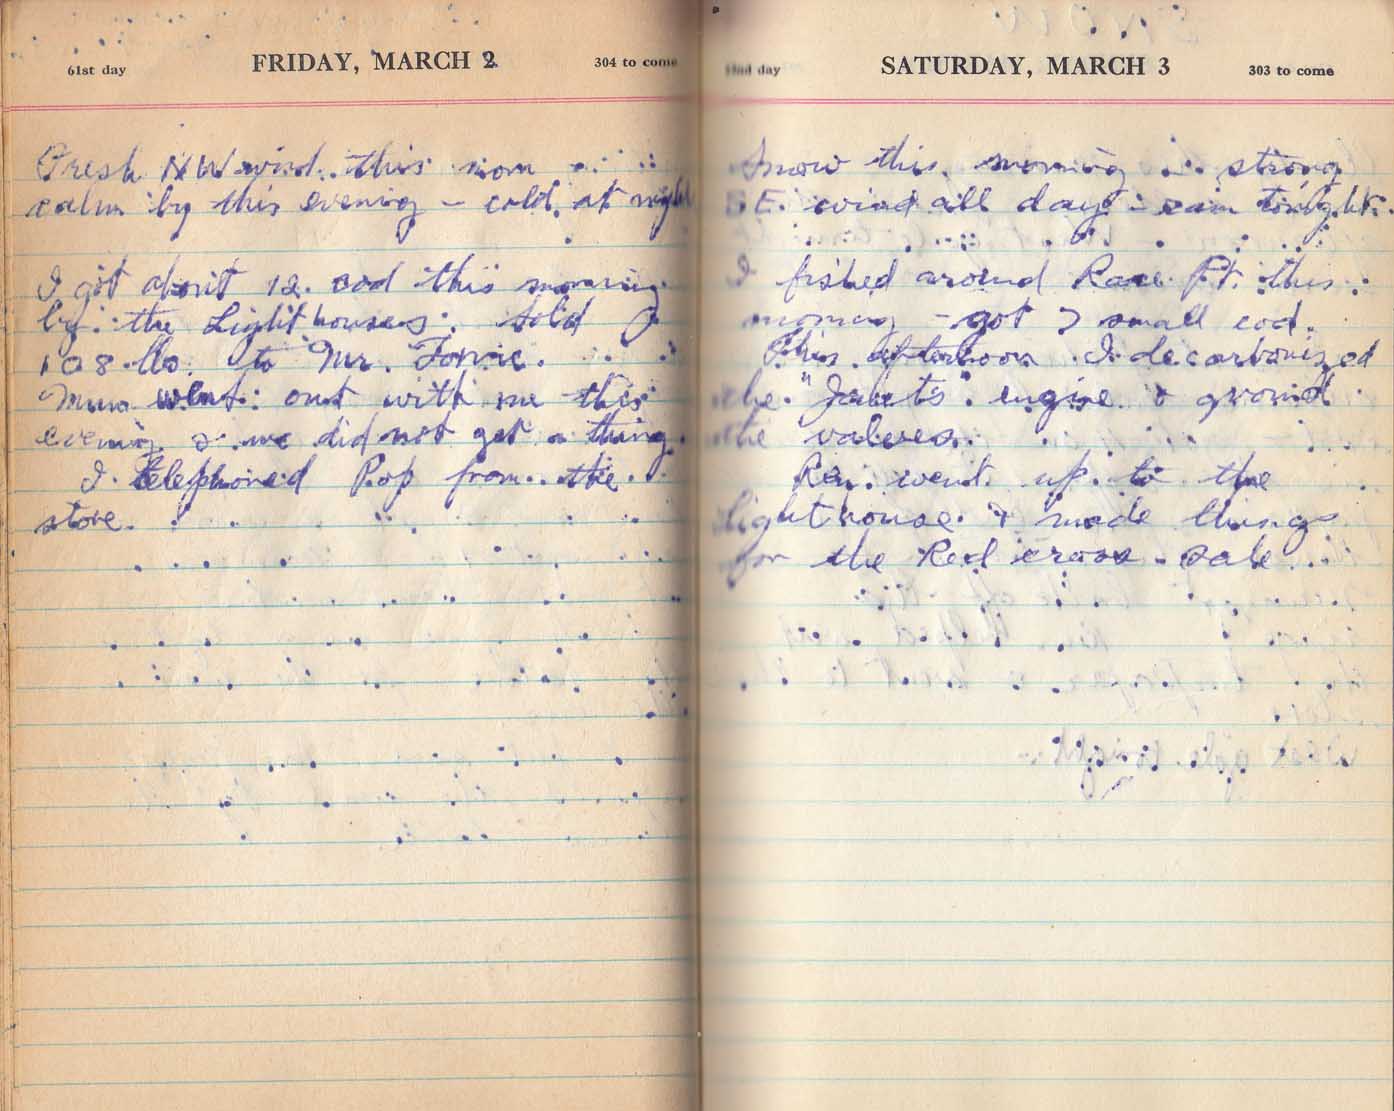 61st day FRIDAY, MARCH 2 304 to come
Fresh NW wind this morn
calm by this evening - cold at night
I got about 12 cod this morning
by the Light houses. Sold
108 lbs. to Mr.
went out with me this
evening & we did not get a thing.
I telephoned Pop from the
store.
day SATURDAY, MARCH 3 303 to come
Snow this morning strong
E. wind all day - rain tonight.
I fished around Race Pt. this
morning - got 7 small cod.
This afternoon I decarbonized
the "Janet's" engine & ground
the valves.
went up to the
lighthouse & made things
for the Red cross sale.